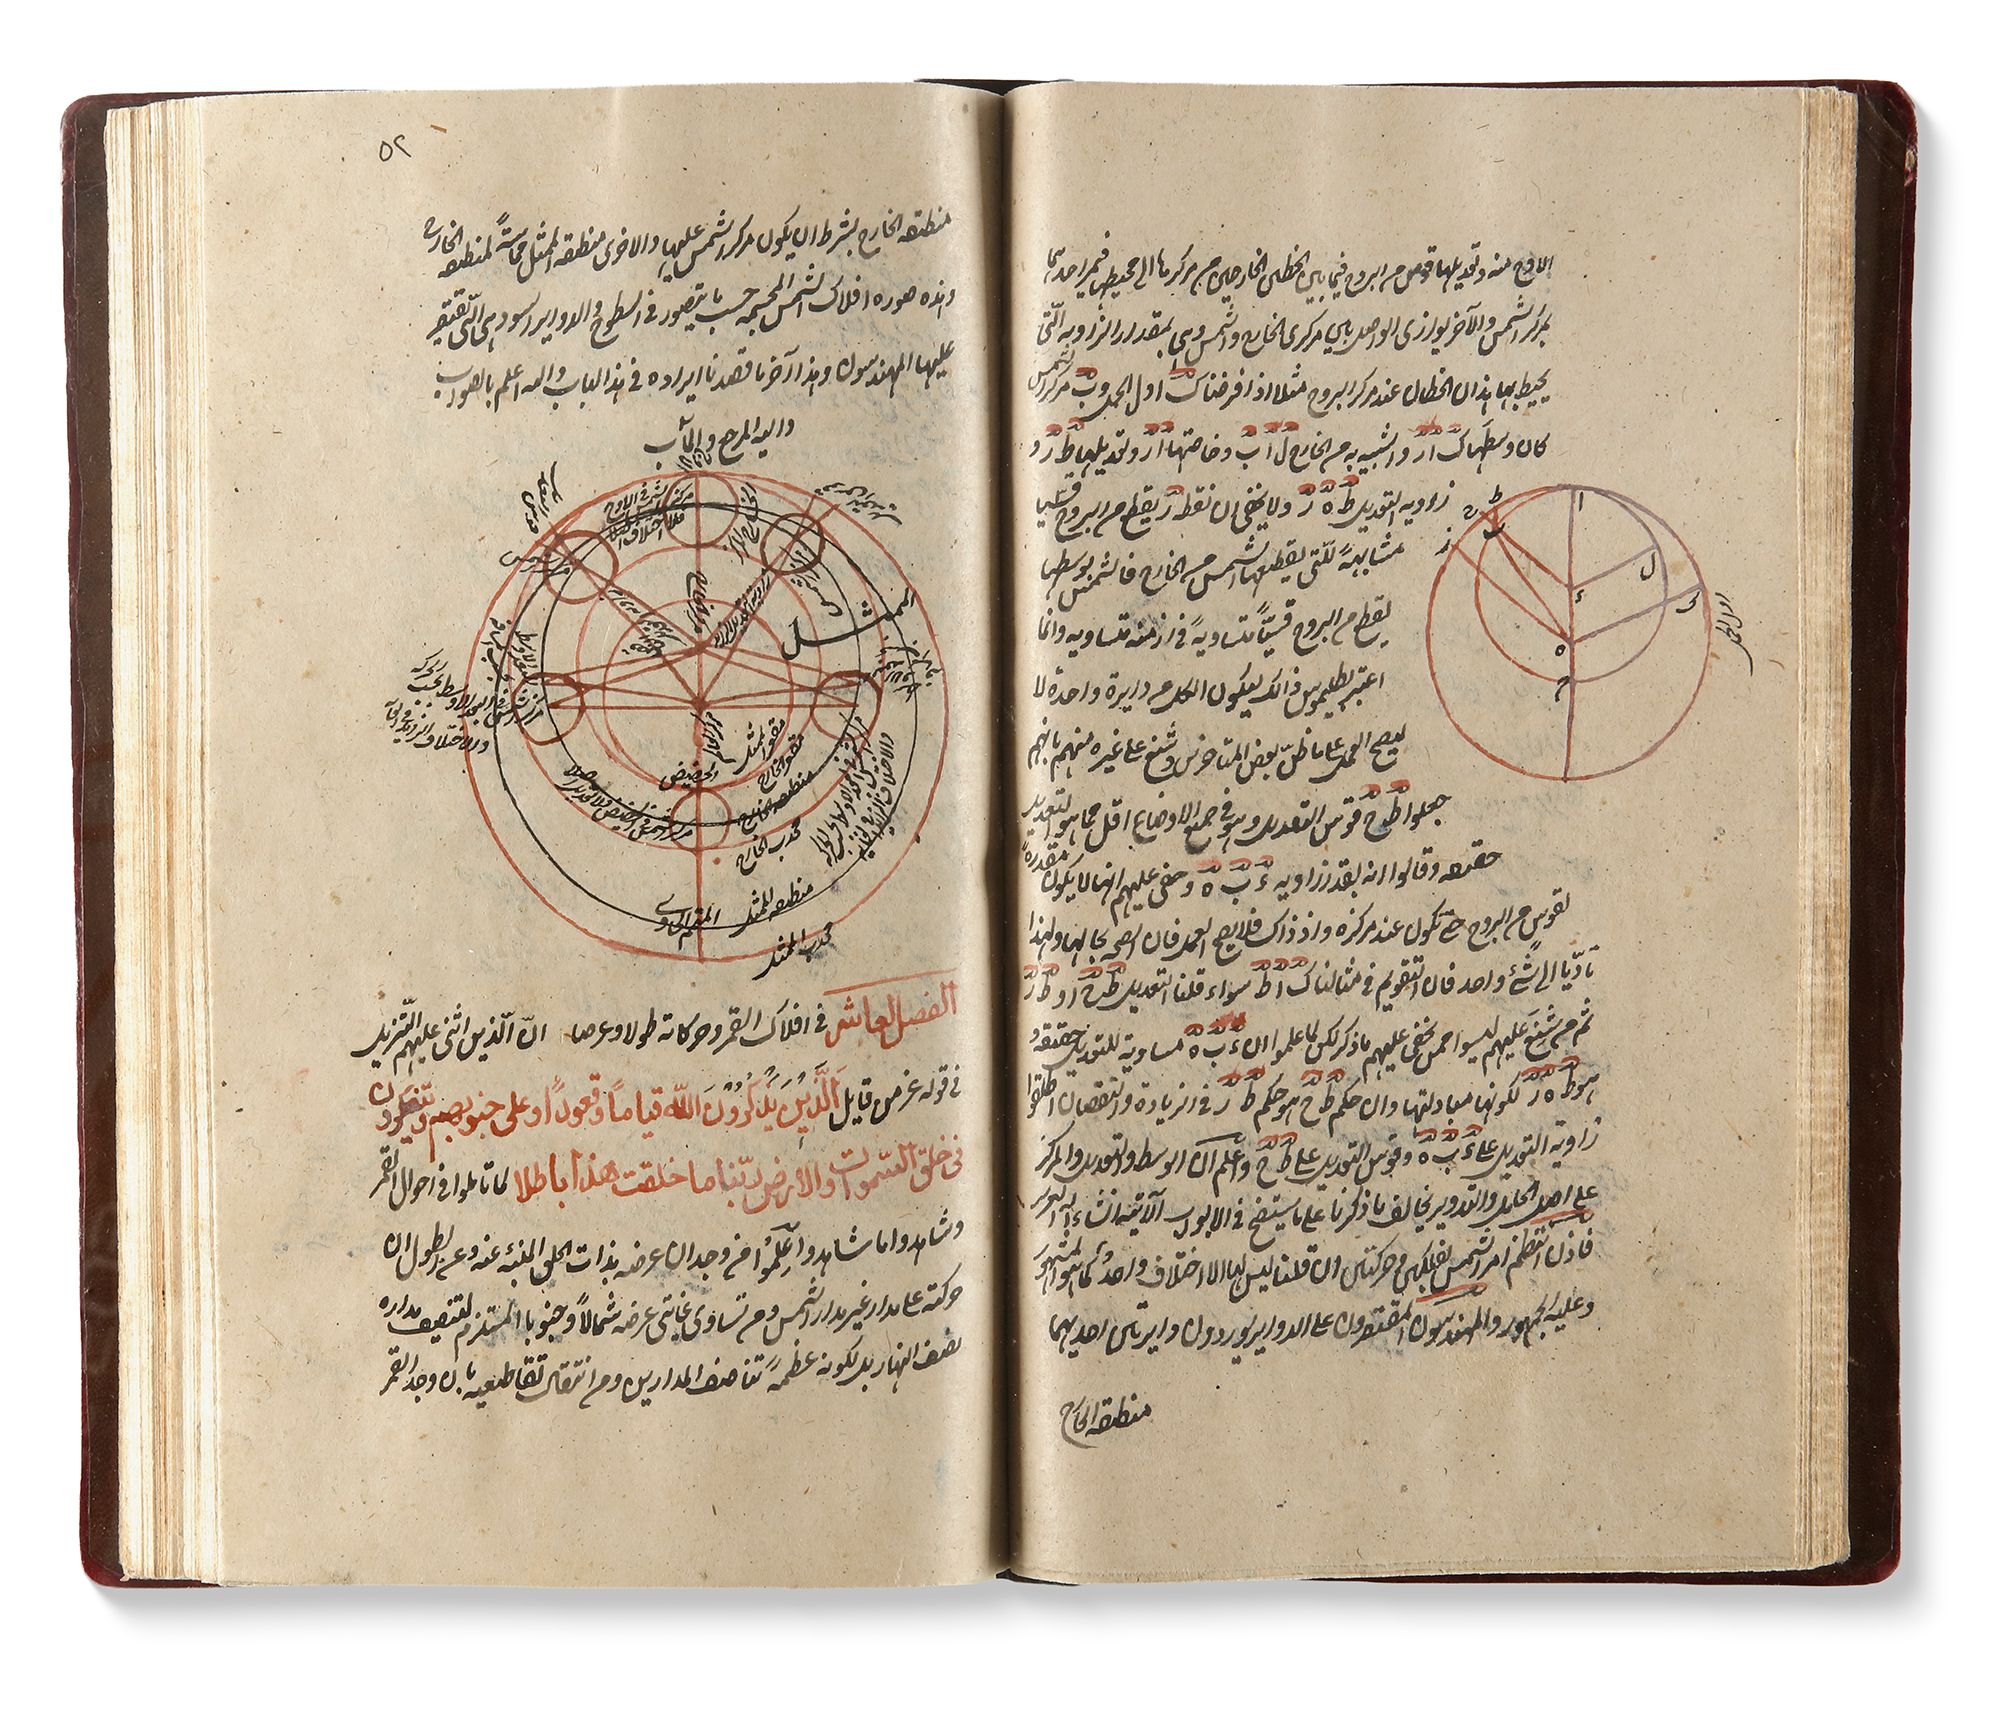 الاوج منه وتعديلها قوس من البروج فيما بين الخطين الخارجين من مركزها الى محيطها فيمر احدهما
بمركز الشمس والآخر يوازى الواصل بين مركزى الخارج والشمس وهى بمقدار الزاوية الّتى
يحيط بها هذان الخطان عند مركز البروج مثلا اذا فرضنا ك اول الحمل و ب مركز الشمس
كان وسطها ك ا ز والشبيه به من الخارج ل ا ب وخاصتها ا ز وتعديلها ط ز و
زاويه التعديل ط ه ز ولا يخفى ان نقطه ز يقطع من البروج قسيا
مشابهةً للّتى يقطعها الشمس من الخارج فالشمس بوسطها
يقطع من البروج قسيّاً متساويةً فى ازمنه متساويه وانما
اعتبر بطليموس ذالك ليكون الكل من دايرة واحدة لا
ليصح العمل على ما ظنّ بعض المتاخرين وشنع على غيره منهم بانهم
جعلوا ط ح قوس التعديل وهو فى جميع الاوضاع اقل مما هو التعديل
حقيقه وقالوا انه بقدر زاويه ء ب ه وخفى عليهم انها لا يكون مقدرة
لقوس من البروج حتى تكون عند مركزه واذ ذاك فلا يصح العمل فان الصحه بحالها ولهذا
تادّيا الى شئ واحد فان التقويم فى مثالنا ك ا ط سواء قلنا التعديل ط ح او ط ز
ثم من شنع عليهم ليسوا ممن يخفى عليهم ما ذكر لكن لما علموا ان ء ب ه مساوية للتعديل حقيقه و
هو ط ه ز لكونها مبادلتها وان حكم ط ح هو حكم ط ز فى الزيادة والنقصان اطلقوا
زاوية التعديل على ء ب ه وقوس التعديل على ط ح واعلم ان الوسط والتعديل والمركز
على اصل الحامل والتدوير يخالف ما ذكرنا على ما سيتضح فى الابواب الآتية انشاء الله العزيز
فاذن انتظم امر الشمس بفلكين وحركتين ان قلنا ليس لها الا اختلاف واحد كما هو المشهور
وعليه الجمهور والمهندسون المقتصرون على الدواير يوردون دايرتين احديهما
منطقه الخارج
ا
ط
ح
ب
ز
ل
ء
ك
ه
م
اول الحمل
٥٢
منطقه الخارج بشرط ان يكون مركز الشمس عليها والاخرى منطقه الممثل مماسةً لمنطقه الخارج
وهذه صوره افلاك الشمس المجسمه حسب ما يتصور فى السطوح والدواير السود هى الّتى تقتصر
عليها المهندسون وهذا آخر ما قصدنا ايراده فى هذا الباب والله اعلم بالصواب
واليه المرجع والمآب
الاوج
مركز الشمس فى الاوج
الممثل
مقعر الممثل
مقعر الخارج
منطقه الخارج
محدب الخارج
الحضيض
المتمم الحاوى
منطقه الممثل
محدب الممثل
الفصل العاشر فى افلاك القمر وحركاته طولا وعرضا انّ الّذين اثنى عليهم التّنزيل
فى قوله عز من قايل اَلَّذِينَ يَذْكُرُونَ اَللّه قياماً وقعوداً او على جنوبهم ويتفكرون
فى خلق السّموات والارض ربّنا ما خلقت هذا باطلا لما تاملوا فى احوال القمر
وشاهدوا ما شاهدوا عَلِمُوا من وجدان عرضه بذات الحلق المنبئه عنه وعن الطول ان
حركته على مدار غير مدار الشمس ومن تساوى غايتى عرضه شمالاً وجنوبا المستلزم لتنصيف مداره
نصف النهار بل لكونه عظمه تناصف المدارين ومن انتقال تقاطعيه بان وجد القمر